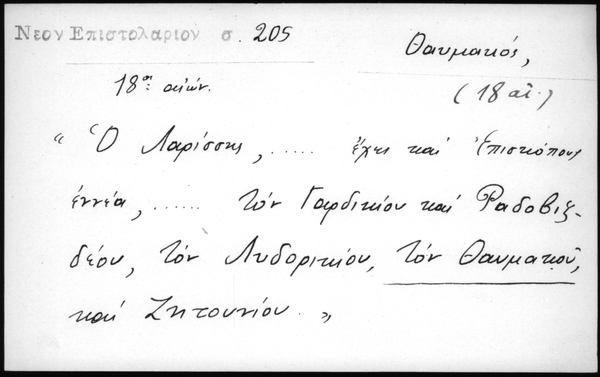 Νεον Επιστολαριον σ. 205
Θαυμακός,
18ος αιών.
(18 αἰ.)
" Ὁ Λαρίσσης, ..... ἔχει καί Ἐπισκόπους
ἐννέα, ...... τόν Γαρδικίου καί Ραδοβιζ-
δέου, τόν Λυδορικίου, τόν Θαυμακοῦ,
καί Ζητουνίου. "